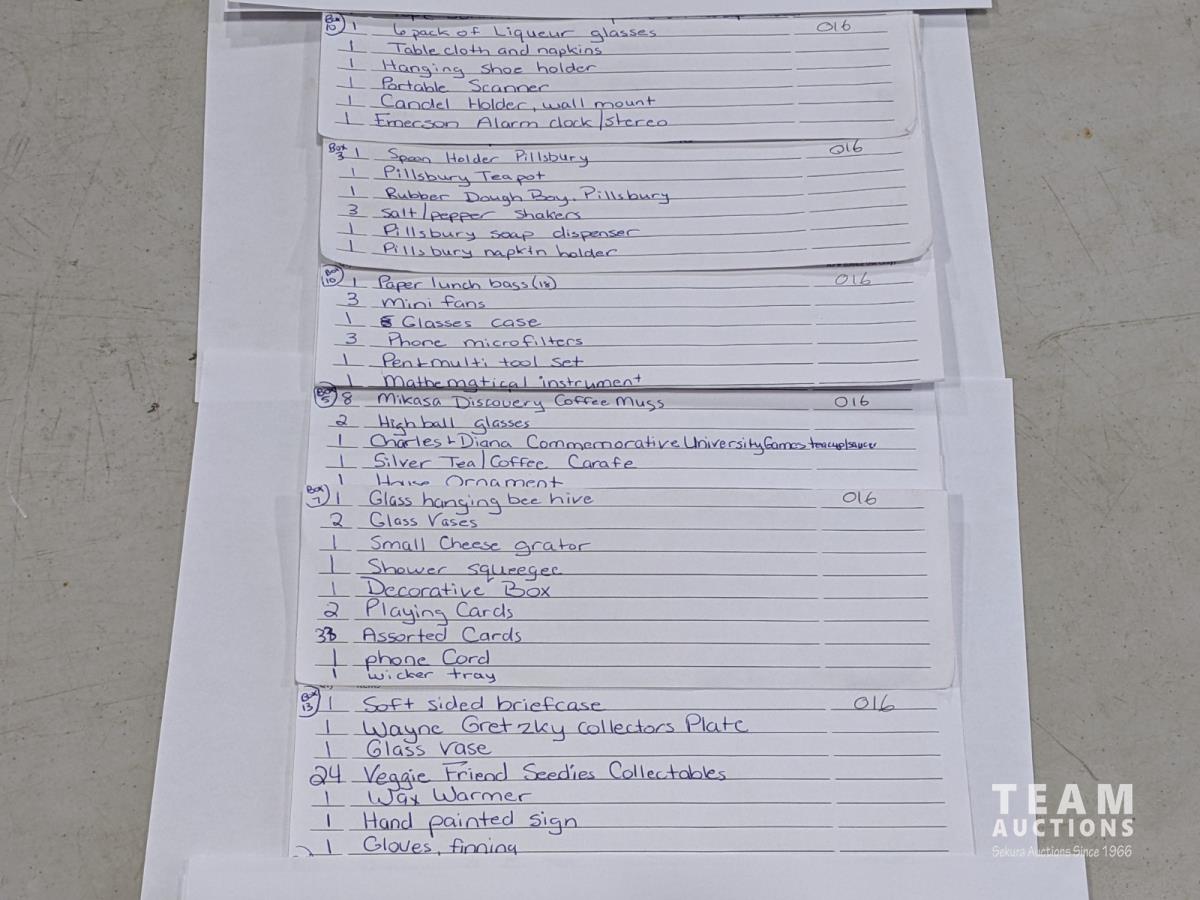 Box 10 1 6 pack of Liqueur glasses 016
1 Table cloth and napkins
1 Hanging shoe holder
1 Portable Scanner
1 Candel Holder, wall mount
1 Emerson Alarm clock/stereo
Box 3 1 Spoon Holder Pillsbury 016
1 Pillsbury Teapot
1 Rubber Dough Boy, Pillsbury
3 salt/pepper shakers
1 Pillsbury soap dispenser
1 Pillsbury napkin holder
Box 10 1 Paper lunch bags (18) 016
3 mini fans
1 Glasses case
3 Phone microfilters
1 Pen+multi tool set
1 Mathematical instrument
Box 5 8 Mikasa Discovery Coffee Mugs 016
2 High ball glasses
1 Charles + Diana Commemorative University Games teacup/saucer
1 Silver Tea/Coffee Carafe
1 Ornament
Box 7 1 Glass hanging bee hive 016
2 Glass Vases
1 Small Cheese grator
1 Shower squeegee
1 Decorative Box
2 Playing Cards
33 Assorted Cards
1 phone Cord
1 wicker tray
Box 13 1 Soft sided briefcase 016
1 Wayne Gretzky collectors Plate
1 Glass vase
24 Veggie Friend Seedies Collectables
1 Wax Warmer
1 Hand painted sign
1 Gloves,
TEAM
AUCTIONS
Sekura Auctions Since 1966